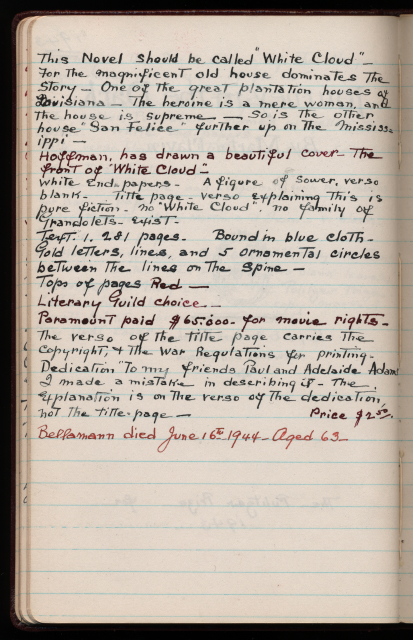 This Novel should be called "White Cloud" -
For the magnificent old house dominates the
Story - One of the great plantation houses of
Louisiana - The heroine is a mere woman, and
the house is supreme — So is the other
house "San Felice" further up on the Mississ-
ippi -
Hoffman, has drawn a beautiful cover - The
front of "White Cloud" -
White End-papers - A figure of Sower, verso
blank - Title page - verso explaining this is
pure fiction - no "White Cloud", no family of
Grandolets - exist -
Text. 1. 281 pages. Bound in blue cloth -
Gold letters, lines, and 5 ornamental circles
between the lines on the Spine -
Tops of pages Red —
Literary Guild choice -
Paramount paid $65.000 - for movie rights -
The verso of the title page carries the
Copyright, & the War Regulations for printing -
Dedication "To my friends Paul and Adelaide Adams
I made a mistake in describing it - The
Explanation is on the verso of the dedication,
not the title-page — Price $2.50.
Bellamann died June 16th 1944 - Aged 63 -